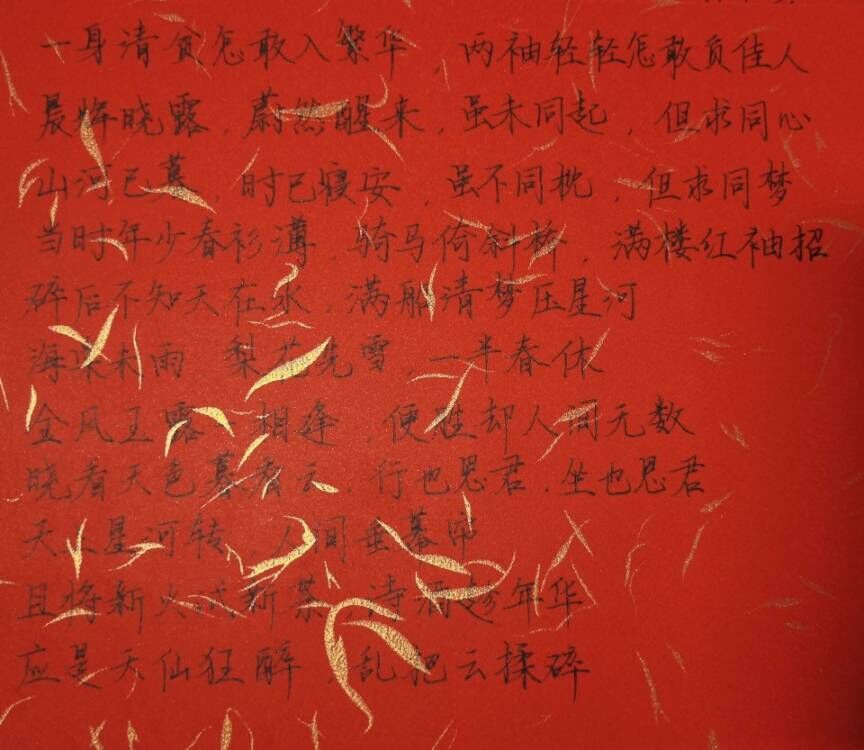 一身清贫怎敢入繁华，两袖轻轻怎敢负佳人
晨晖晓露，蔚然醒来，虽未同起，但求同心
山河已暮 时已寝安，虽不同枕，但求同梦
当时年少春衫薄，骑马倚斜桥，满楼红袖招
碎后不知天在水，满船清梦压星河
海棠未雨 梨花先雪，一半春休
金风玉露一相逢，便胜却人间无数
晓看天色暮看云，行也思君，坐也思君
天上星河转，人间垂幕帘
且将新火试新茶，诗酒趁年华
应是天仙狂醉，乱把云揉碎